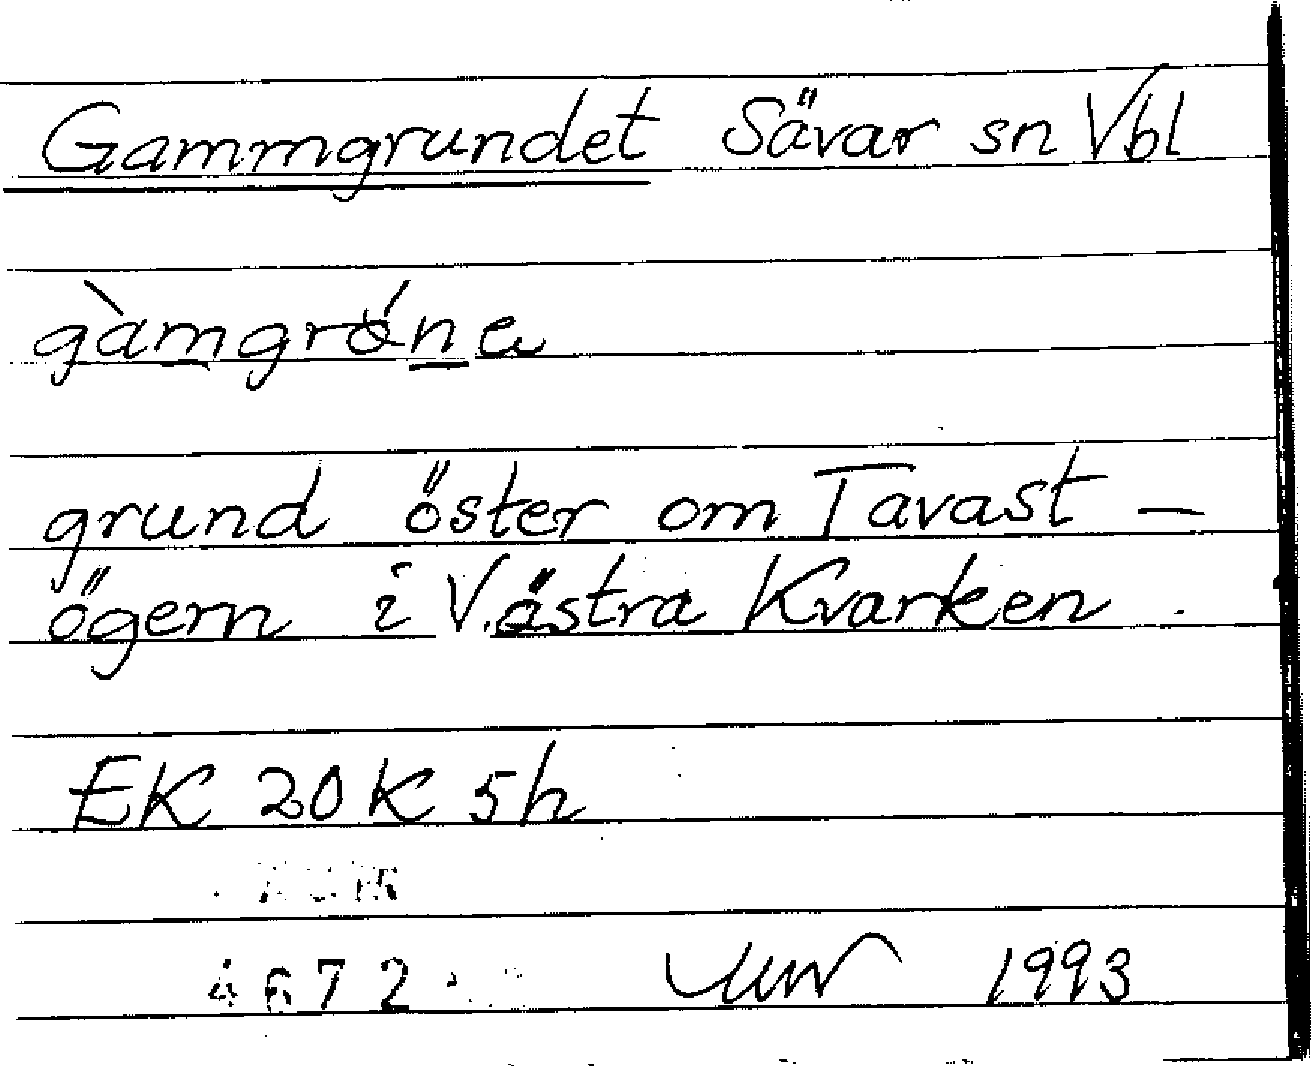 Gammgrundet Sävar sn Vbl
gàmgrǿna
grund öster om Tavast-
ögern i Västra Kvarken.
EK 20K 5h
4672
1993